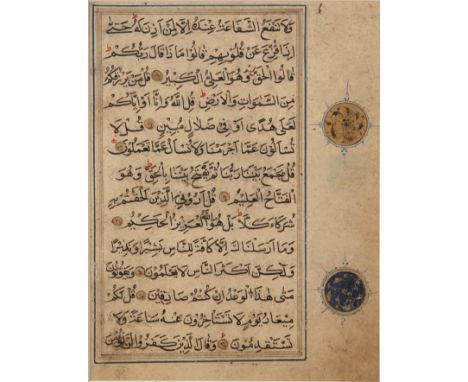 ولا تنفع الشفاعة عنده الا لمن اذن له حتى
اذا فزع عن قلوبهم قالوا ماذا قال ربكم
قالوا الحق وهو العلي الكبير قل من يرزقكم
من السموات والارض قل الله وانا او اياكم
لعلى هدى او في ضلال مبين قل لا
تسألون عما اجرمنا ولا نسأل عما تعملون
قل يجمع بيننا ربنا ثم يفتح بيننا بالحق وهو
الفتاح العليم قل اروني الذين الحقتم به
شركاء كلا بل هو الله العزيز الحكيم
وما ارسلناك الا كافة للناس بشيرا ونذيرا
ولكن اكثر الناس لا يعلمون ويقولون
متى هذا الوعد ان كنتم صادقين قل لكم
ميعاد يوم لا تستأخرون عنه ساعة ولا
تستقدمون وقال الذين كفروا